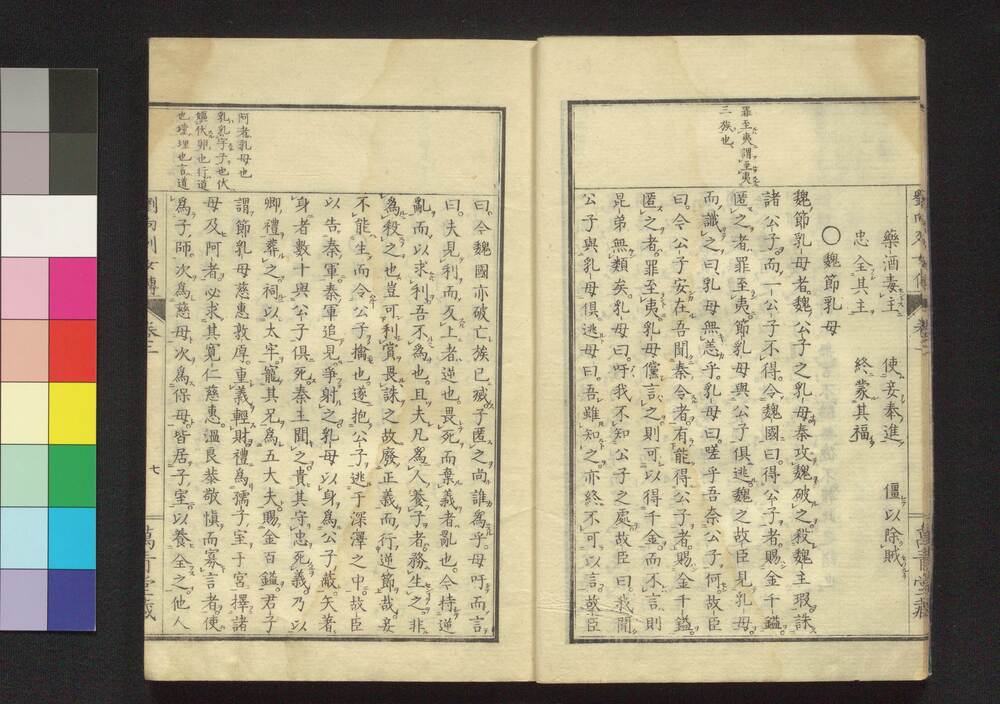 劉向列女傳 卷之 萬青堂藏
藥酒毒主 使妾奉進 僵以除賊
忠全其主 終蒙其福
○魏節乳母
魏節乳母者魏公子之乳母秦攻魏破之殺魏主瑕誅
諸公子而一公子不得令魏國曰得公子者賜金千鎰
匿之者罪至夷節乳母與公子俱逃魏之故臣見乳母
而識之曰乳母無恙乎乳母曰嗟乎吾奈公子何故臣
曰今公子安在吾聞秦令者有能得公子者賜金千鎰
匿之者罪至夷乳母儻言之則可以得千金而不言則
昆弟無類矣乳母曰吁我不知公子之處故臣曰我聞
公子與乳母俱逃母曰吾雖知之亦終不可以言故臣
罪至夷謂至夷
三族也
曰今魏國亦破亡族已滅子匿之尚誰爲乎母吁而言
曰夫見利而反上者逆也畏死而棄義者亂也今持逆
亂而以求利吾不爲也且夫凡爲人養子者務生之非
爲殺之也豈可利賞畏誅之故廢正義而行逆節哉妾
不能生而令公子擒也遂抱公子逃于深澤之中故臣
以告秦軍秦軍追見爭射之乳母以身爲公子蔽矢著
身者數十與公子俱死秦王聞之貴其守忠死義乃以
卿禮葬之祠以太牢寵其兄爲五大夫賜金百鎰君子
謂節乳母慈惠敦厚重義輕財禮爲孺子室于宮擇諸
母及阿者必求其寬仁慈惠溫良恭敬愼而寡言者使
爲子師次爲慈母次爲保母皆居子室以養全之他人
阿者乳母也
乳乳字子也伏
雞伏卵也行道
也墐埋也言道
劉向列女傳 卷之二 七 萬青堂藏